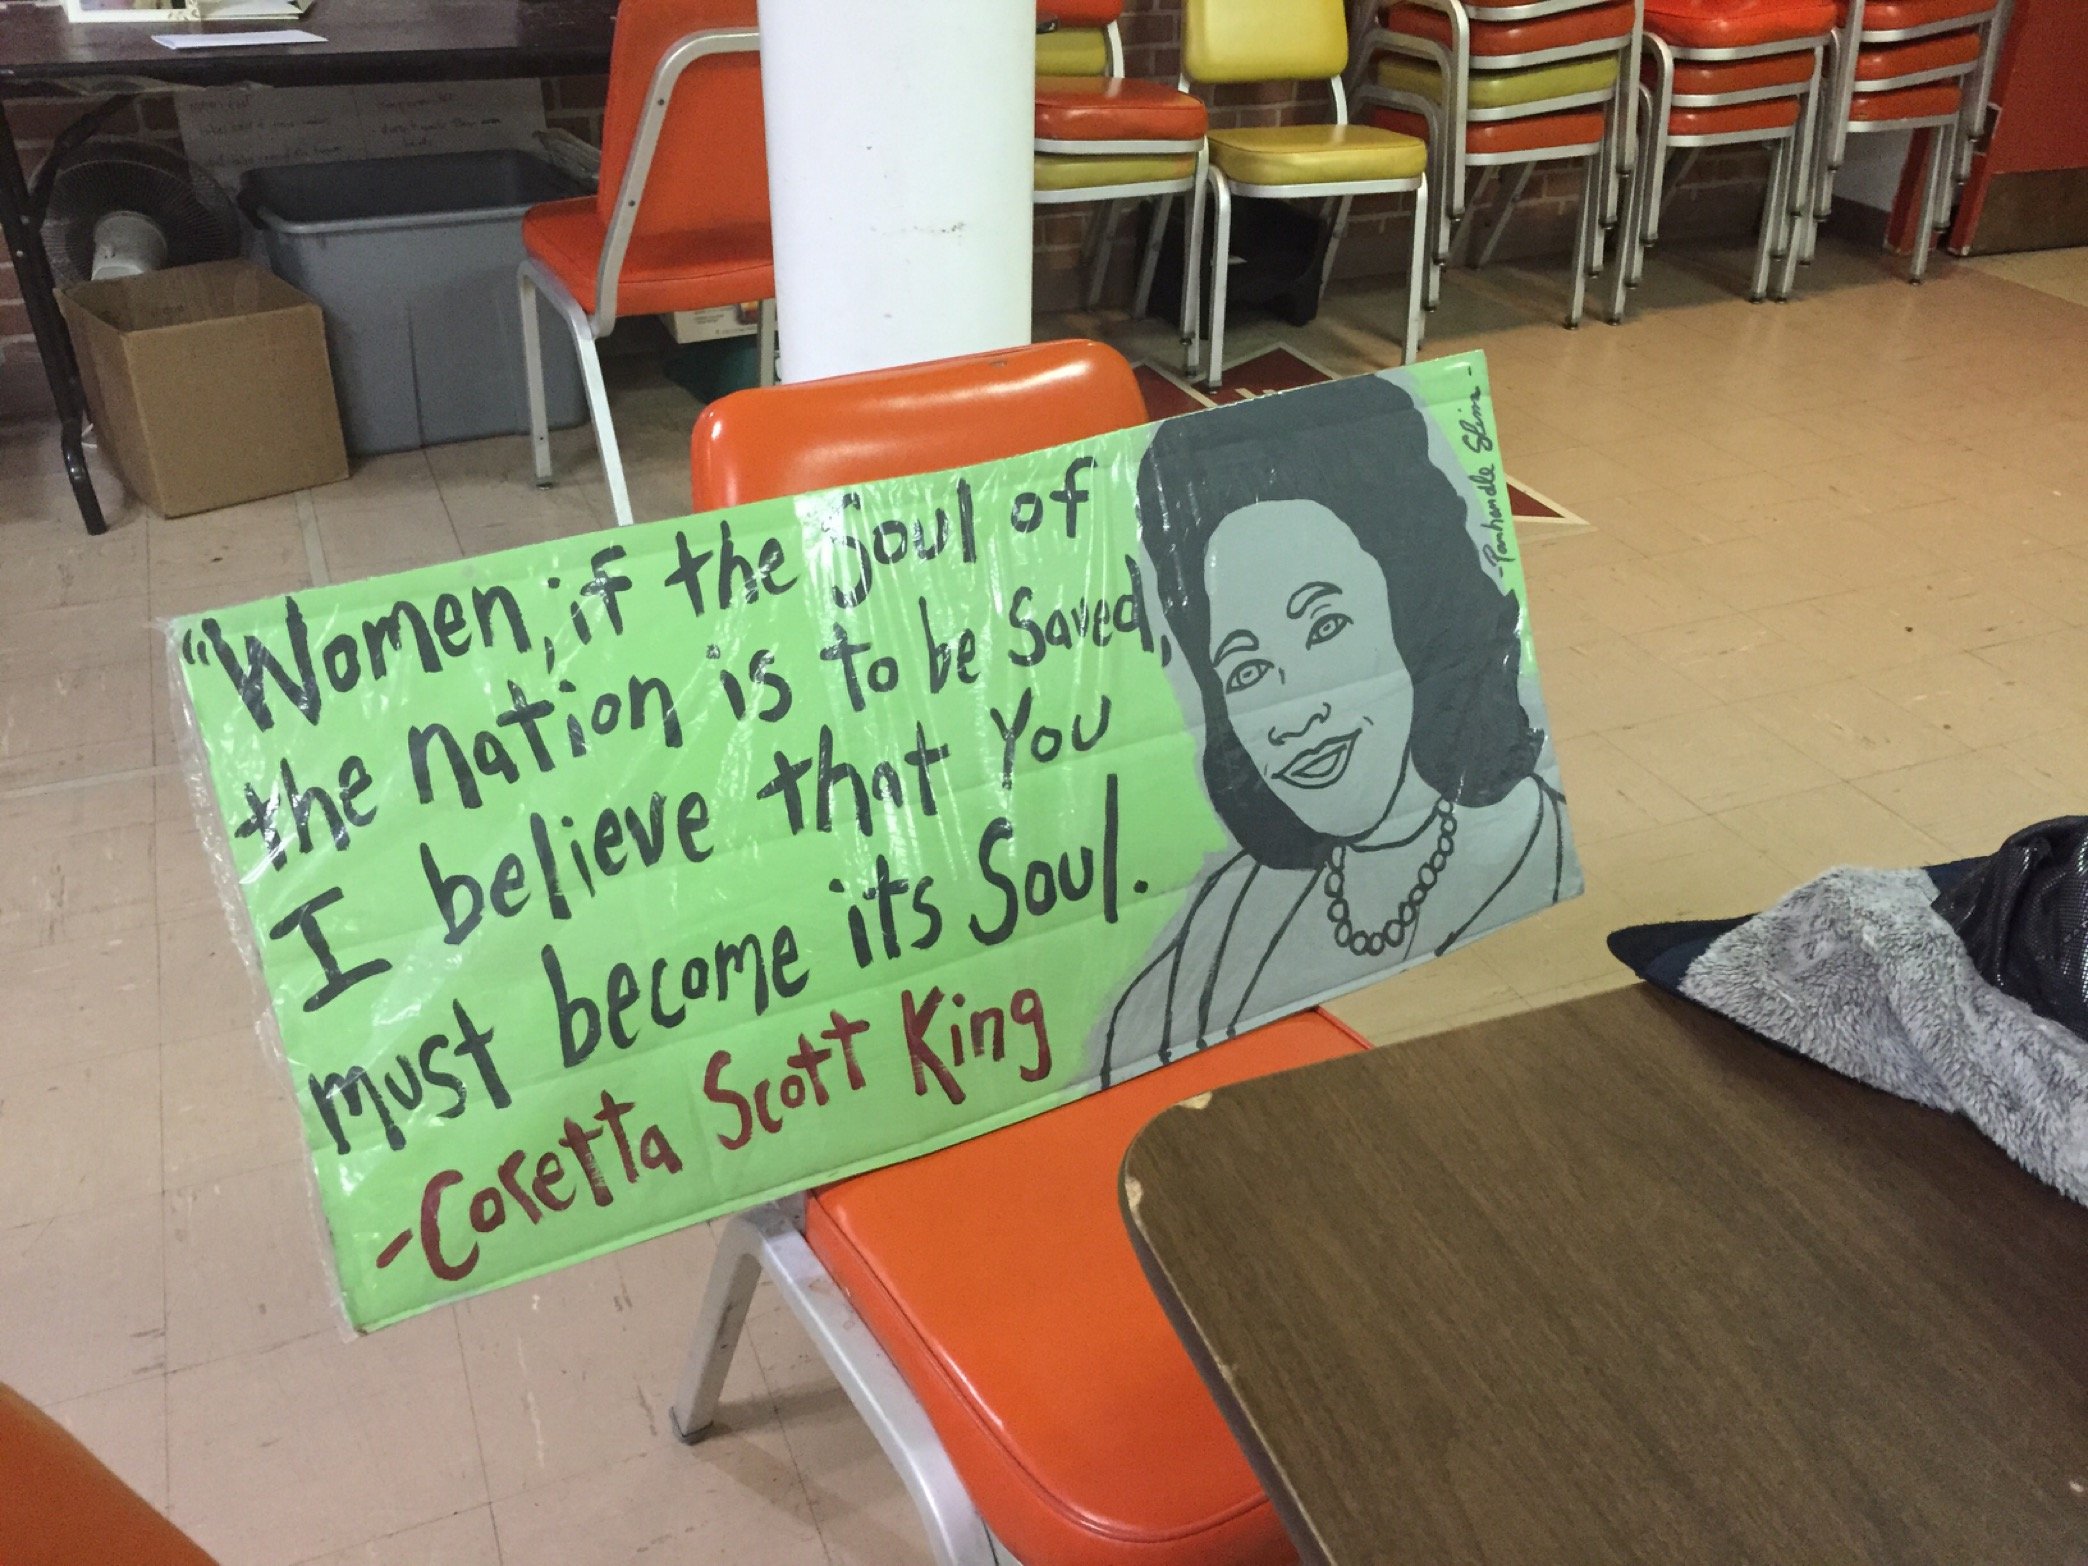 "Women, if the Soul of
the nation is to be Saved,
I believe that You
must become its Soul.
-Coretta Scott King
-Panhandle Slim-